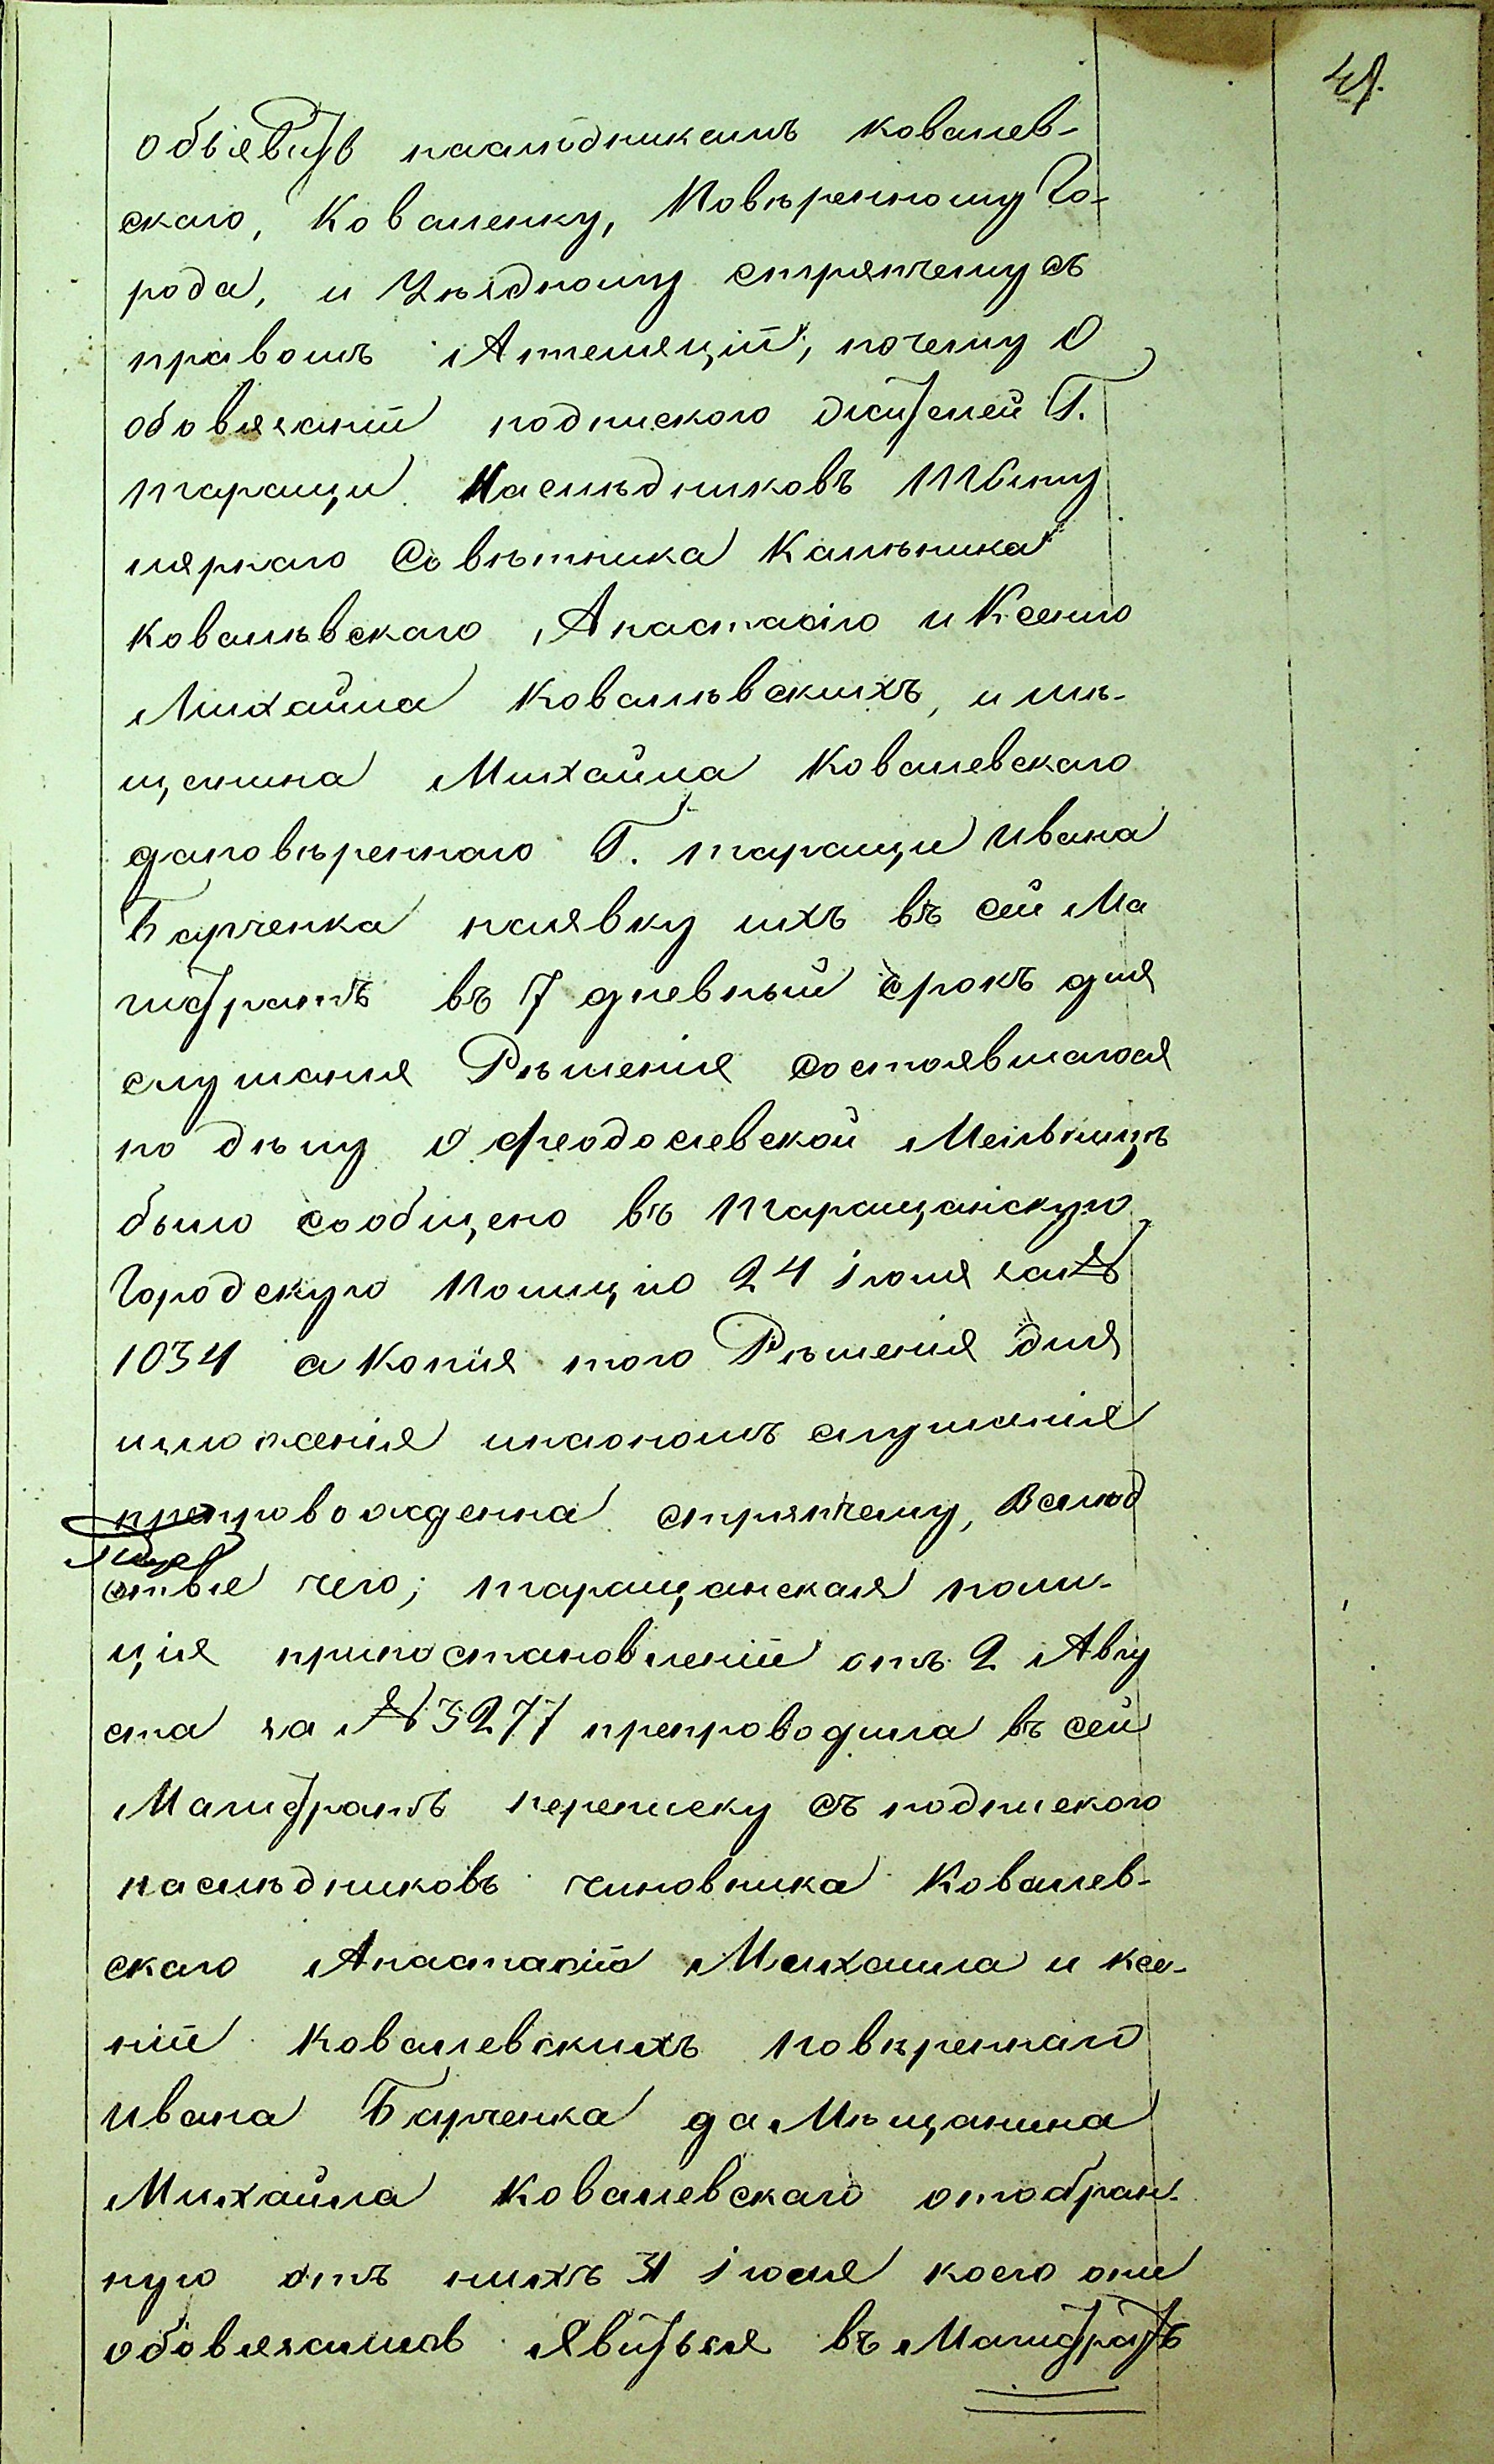 объявить наслѣдникамъ Ковалев-
скаго, Коваленку, Повѣренному Го-
рода, и Уѣздному стряпчему съ
правомъ Аппеляціи, почему о
обовязаніи подпискою жителей Г.
Таращи Наслѣдниковъ Титу
лярнаго Совѣтника Калѣника
Ковалѣвскаго, Анастасію и Ксенію
Михайла Ковалѣвскихъ, и мѣ-
щенина Михайла Ковалевскаго
даповѣреннаго Г. Таращи Ивана
Барченка наявку ихъ въ сей Ма
гистратъ въ 7 дневный срокъ для
слушания Рѣшенія состоявшагося
по дѣлу о Феодосіевской Мельницѣ
было сообщено въ Таращанскую
Городскую Полицію 24 Іюля за №
1034 а Копія того Рѣшенія для
изложенія наономъ слушанія
препровожденна стряпчему, Вслѣд
ствіе чего; Таращанская поли-
ція припостановленіи отъ 2 Авгу
ста за № 3277 препроводила въ сей
Магистратъ переписку съ подпискою
наслѣдниковъ чиновника Ковалев-
скаго Анастасіи Михаила и Ксе-
ніи Ковалевскихъ повѣреннаго
Ивана Барченка да Мѣщанина
Михайла Ковалевскаго отобран-
ную отъ нихъ 31 Іюля коею они
обовязались Явиться въ Магистратъ